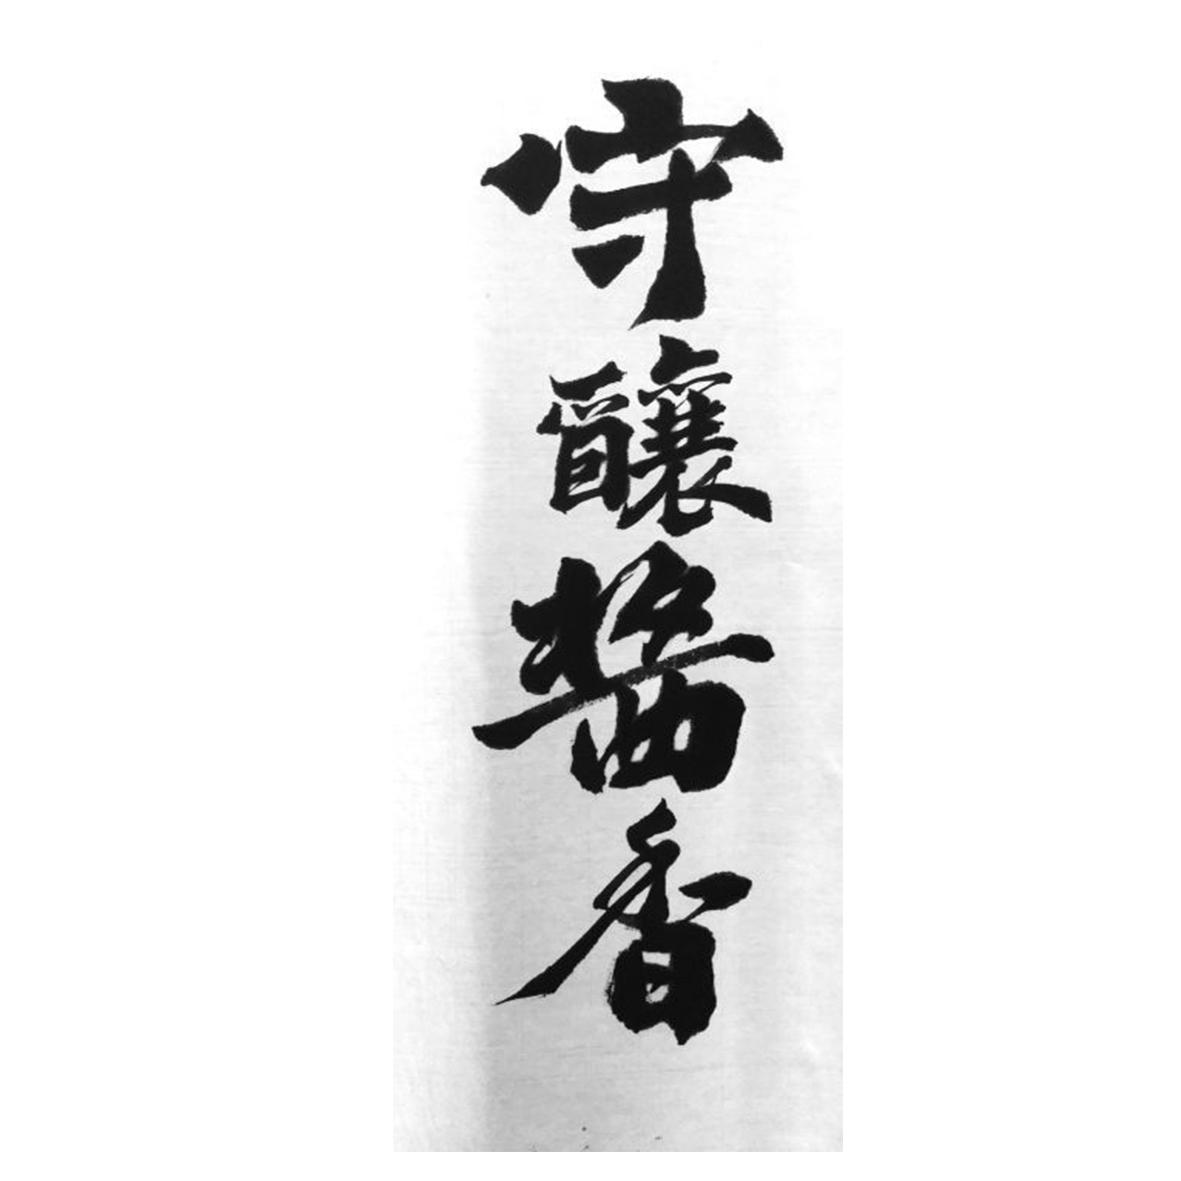 守釀醬香